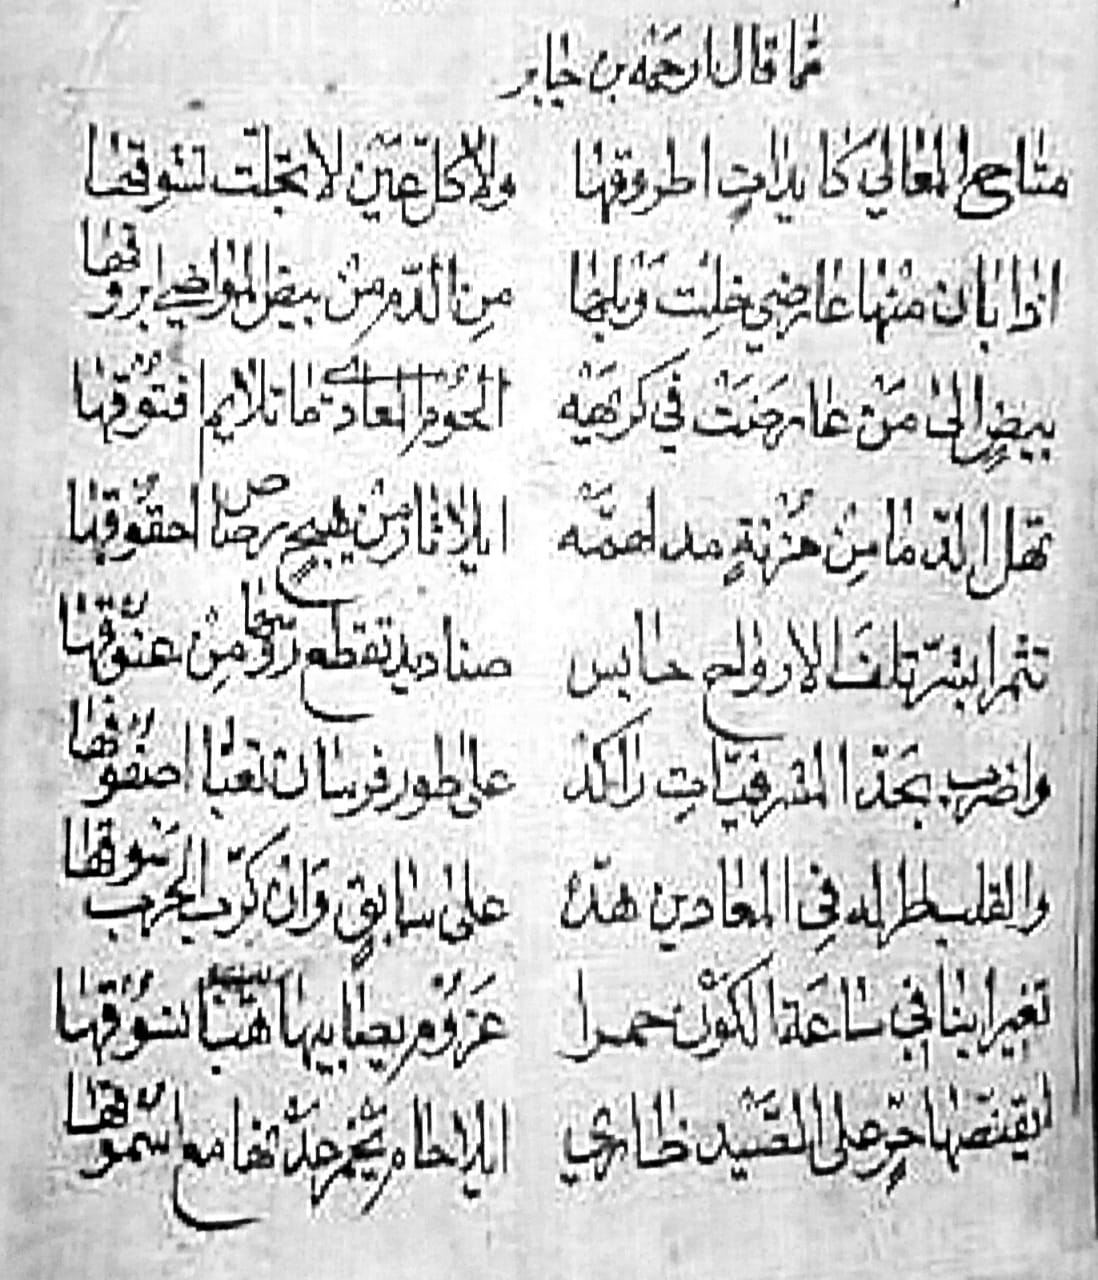 مما قال ارحمه بن جابر
متاجح المعالي كايدات اطروقها ولا كل عين لا تجلت تشوقها
اذا بان منها عارضي خلت وبلها من الدم من بيض المواضي بروقها
بيض الى من عارضت في كريهه الحوم المعادي ما تلايم افتوقها
تهل الدما من مزنة مدلهمه ايلا ثار من هيج رصاص احقوقها
تثمر ابشر تلف الارواح حابس صناديد تقطع روسها من عنوقها
واضرب بحد المشرفيات راكد على طور فرسان تعبا اصفوفها
والقلب طرله في المعادين هده على سابق وان كرب الحرب سوقها
تغير ابنا في ساعة الكون حمرا عزوم يصابيها هبنا نسوقها
ايقنصها حر على الصيد ضاري ايلا حام يخم حدتها مع اسموقها